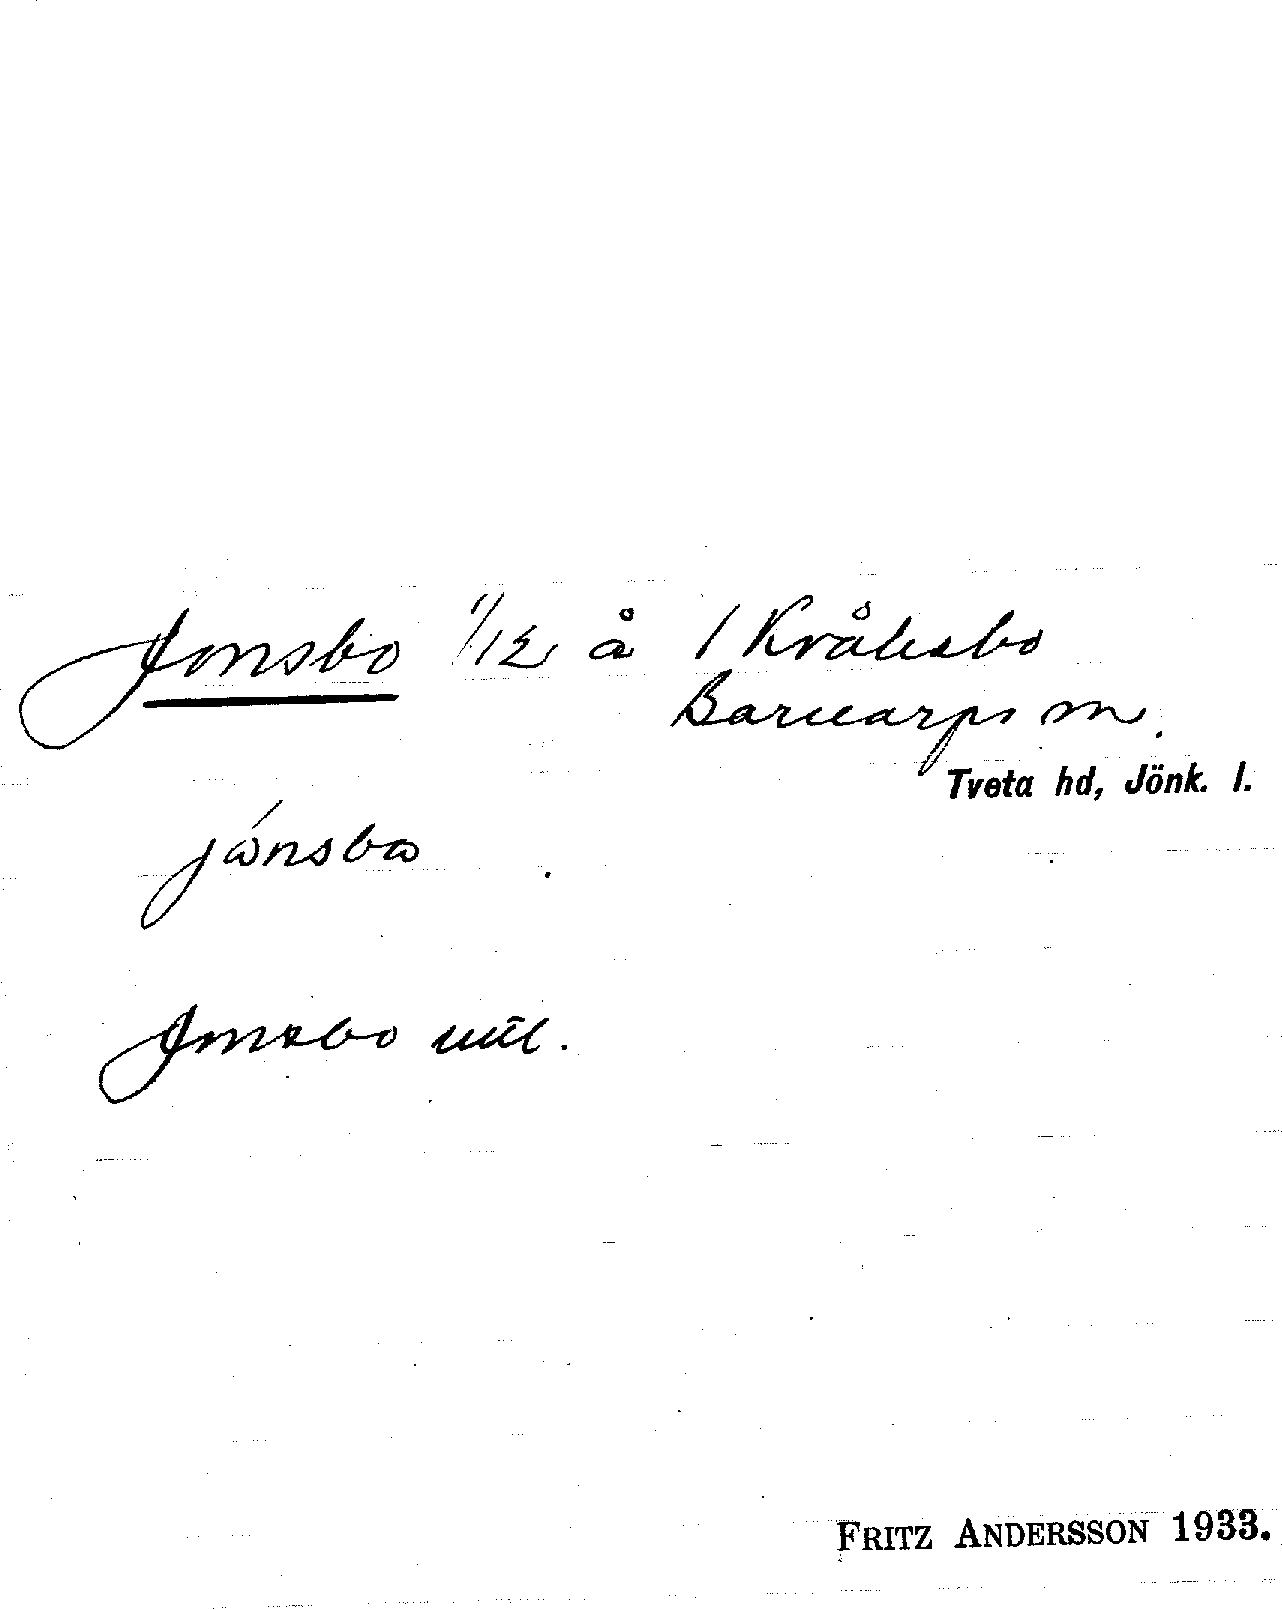 Jonsbo 1/12 å 1 Kråkebo
Barnarps sn.
Tveta hd, Jönk. l.
jónsbo
Jonsbo
FRITZ ANDERSSON 1933.